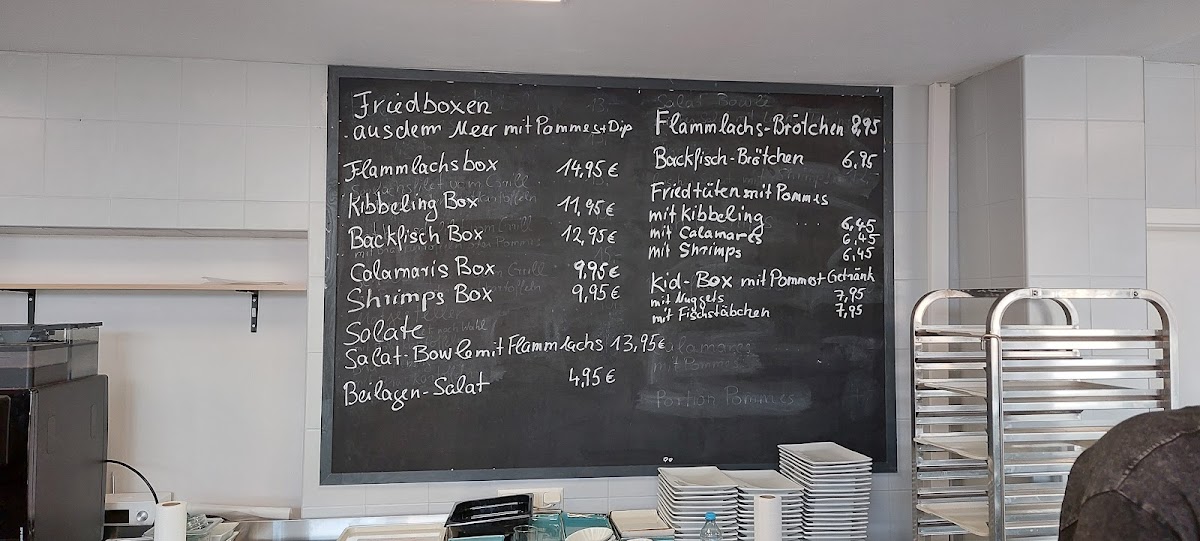 Friedboxen
aus dem Meer mit Pommes + Dip
Flammlachsbox 14,95 €
Kibbeling Box 11,95 €
Backfisch Box 12,95 €
Calamaris Box 9,95 €
Shrimps Box 9,95 €
Salate
Salat-Bowle mit Flammlachs 13,95 €
Beilagen-Salat 4,95 €
Salat Bowle
Flammlachs-Brötchen 8,95
Backfisch-Brötchen 6,95
Friedtüten mit Pommes
mit Kibbeling 6,45
mit Calamares 6,45
mit Shrimps 6,45
Kid-Box mit Pommes + Getränk
mit Nuggets 7,95
mit Fischstäbchen 7,95
Calamares
mit Pommes
Portion Pommes